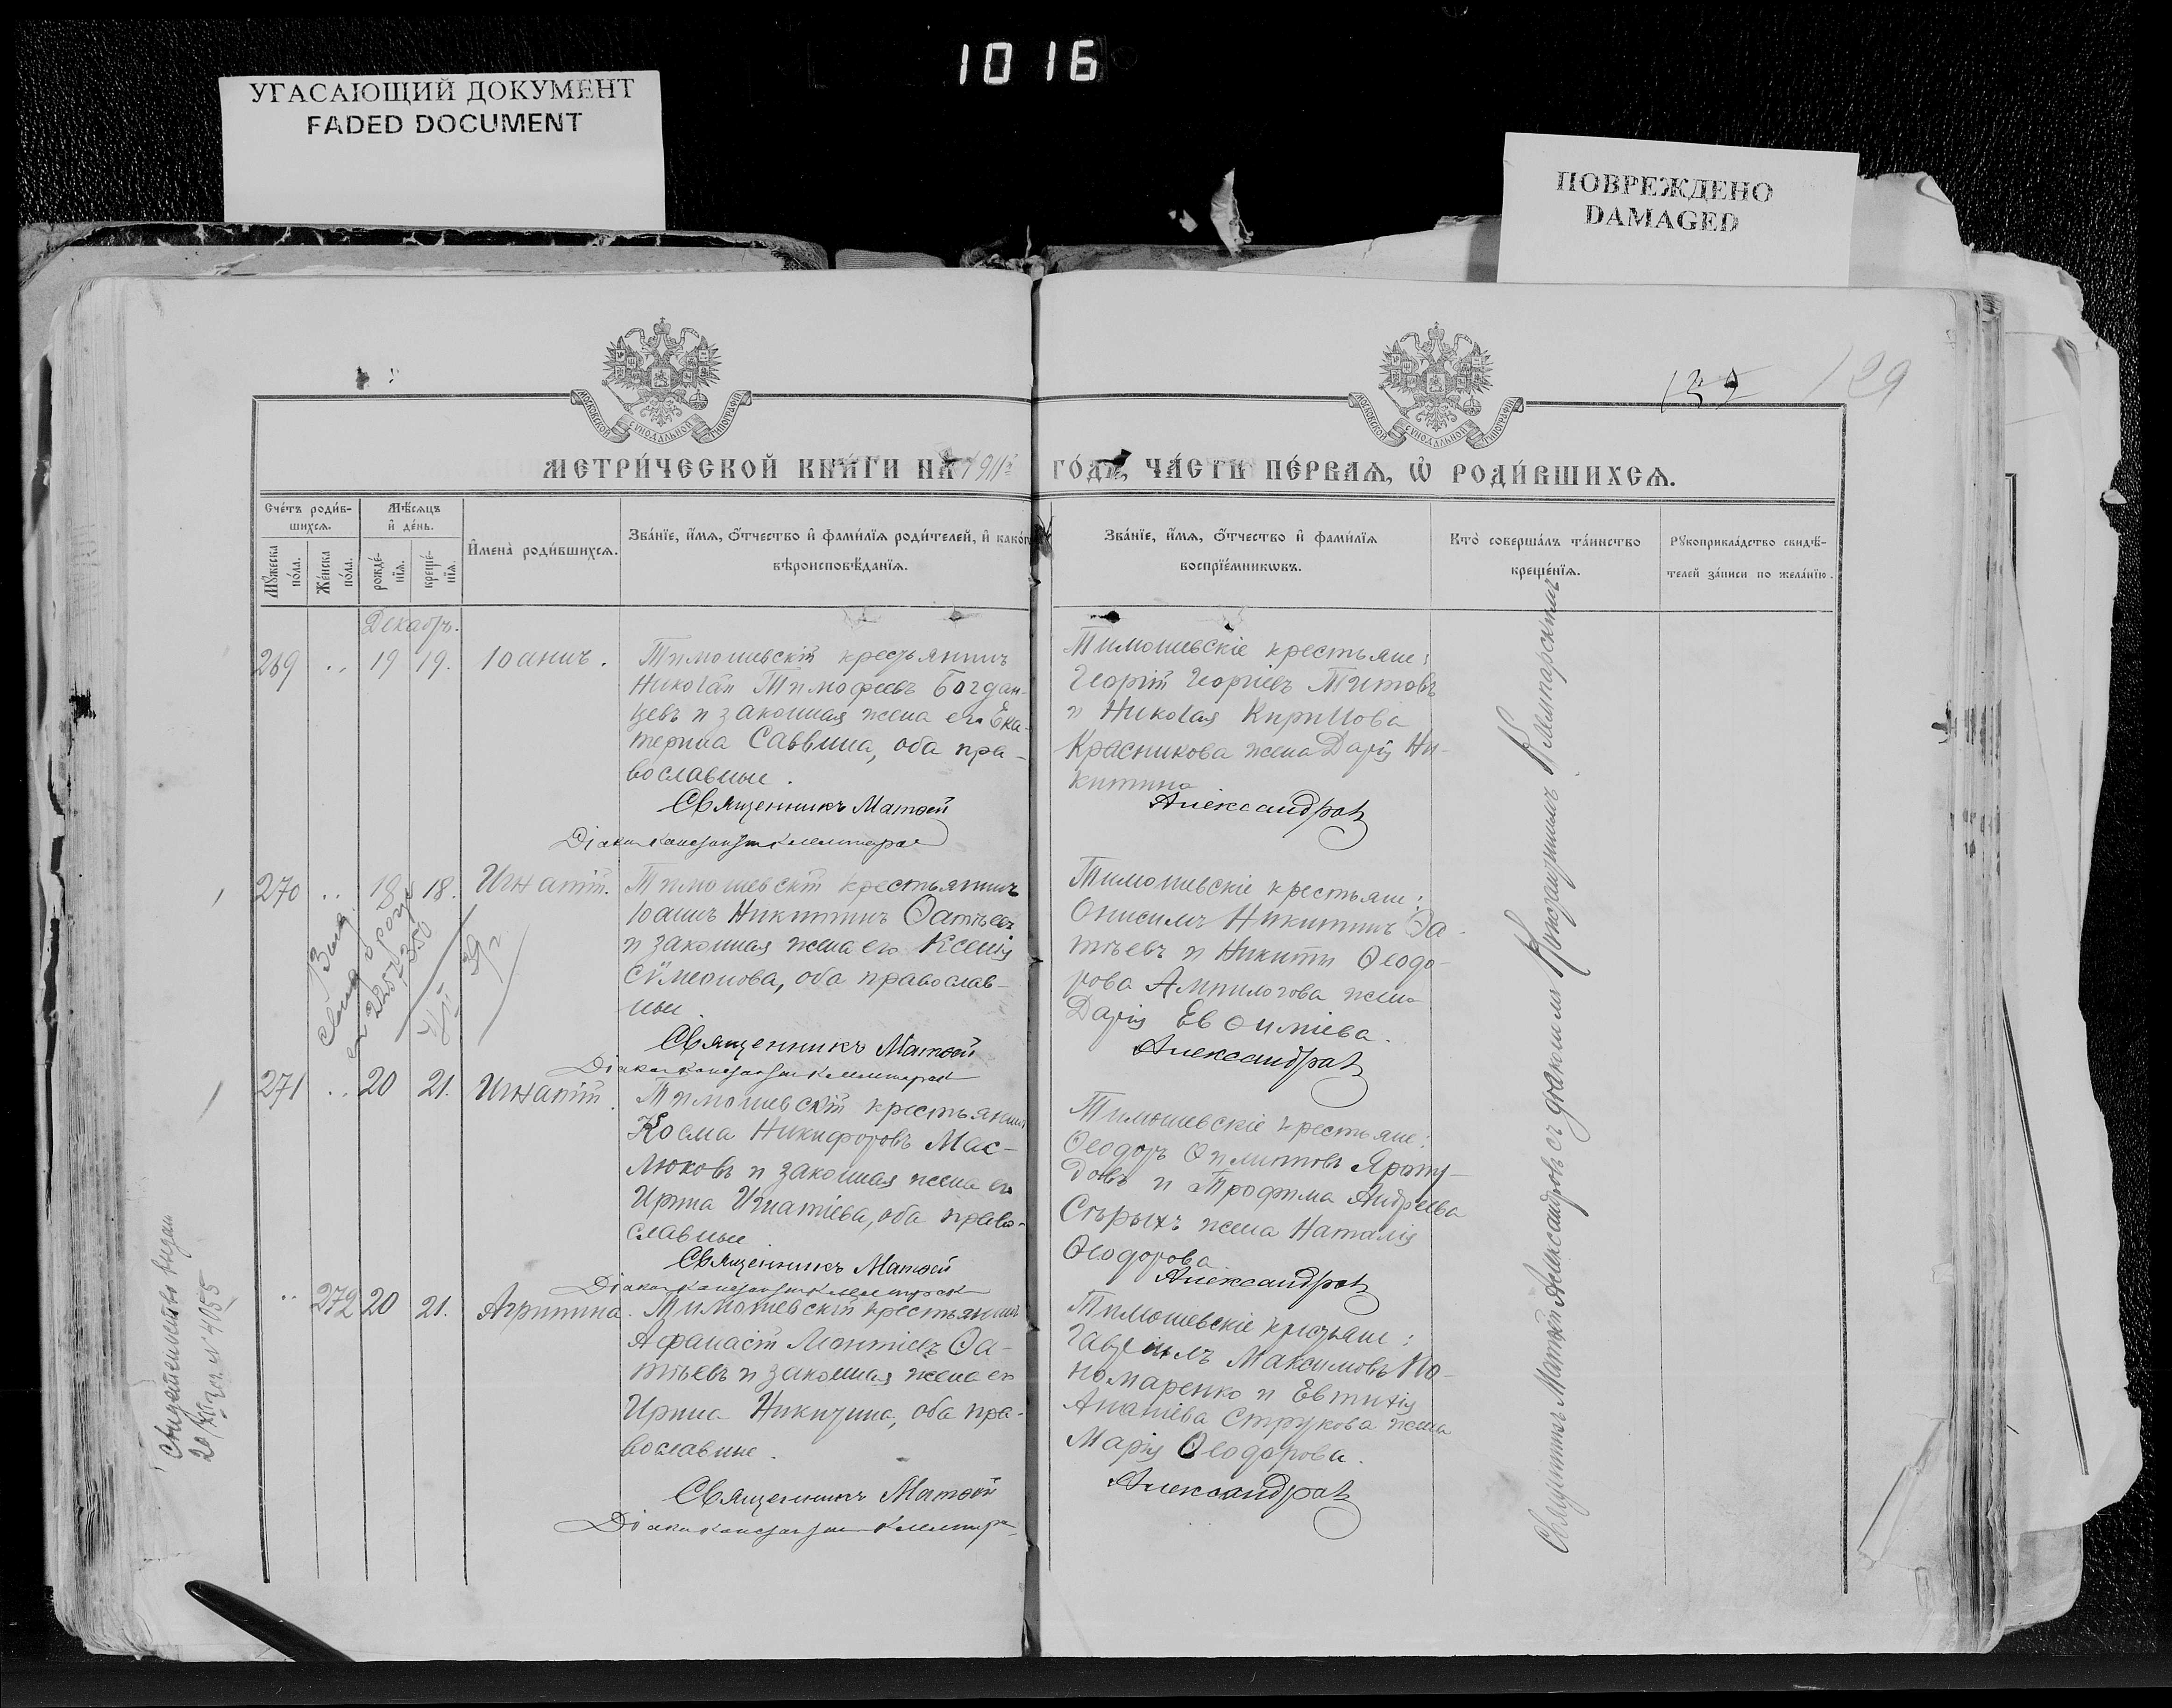 1016
УГАСАЮЩИЙ ДОКУМЕНТ
FADED DOCUMENT
ПОВРЕЖДЕНО
DAMAGED
129
МОСКОВСКОЙ СѴНОДАЛЬНОЙ ТИПОГРАФІИ
МОСКОВСКОЙ СѴНОДАЛЬНОЙ ТИПОГРАФІИ
МЕТРИ́ЧЕСКОЙ КНИ́ГИ НА 1911 ГО́ДЪ, ЧА́СТЬ ПЕ́РВАѦ, Ѽ РОДИ́ВШИХСѦ.
Сче́тъ роди́вшихсѧ.
Мꙋ́жеска по́ла.
Же́нска по́ла.
Мѣ́сѧцъ и҆ де́нь.
рожде́нїѧ.
креще́нїѧ.
И҆мена̀ роди́вшихсѧ.
Зва́нїе, и҆́мѧ, ѻ҆́тчество и҆ фами́лїѧ роди́телей, и҆ како́гѡ
вѣроисповѣ́данїѧ.
Зва́нїе, и҆́мѧ, ѻ҆́тчество и҆ фами́лїѧ
воспрїе́мникѡвъ.
Кто̀ соверша́лъ та́инство
креще́нїѧ.
Рꙋкоприкла́дство свидѣ́-
телей за́писи по жела́нїю.
Декабрь.
269 .. 19 19. Іоаннъ.
Тимошевскій крестьянинъ
Николай Тимофеевъ Богдан-
цевъ и законная жена его Ека-
терина Саввина, оба пра-
вославные.
Священникъ Матѳей
Діаконъ Константинъ
Тимошевскіе крестьяне:
Георгій Георгіевъ Титовъ
и Николая Кириллова
Красникова жена Дарія Ни-
китина
Александровъ
270 .. 18 18. Игнатій.
Тимошевскій крестьянинъ
Іоаннъ Никитинъ Ѳатѣевъ
и законная жена его Ксенія
Сѵмеонова, оба православ-
ные.
Священникъ Матѳей
Діаконъ Константинъ
Тимошевскіе крестьяне:
Онисимъ Никитинъ Ѳа-
тѣевъ и Никиты Ѳеодо-
рова Ампилогова жена
Дарія Евѳиміева.
Александровъ
271 .. 20 21. Игнатій.
Тимошевскій крестьянинъ
Косма Никифоровъ Мас-
люковъ и законная жена его
Ирина Игнатіева, оба право-
славные
Священникъ Матѳей
Діаконъ Константинъ
Тимошевскіе крестьяне:
Ѳеодоръ
и Трофима Андреева
Сѣрыхъ жена Наталія
Ѳеодорова
Александровъ
.. 272 20 21. Агриппина.
Тимошевскій крестьянинъ
Афанасій Леонтіевъ Ѳа-
тѣевъ и законная жена его
Ирина Никитина, оба пра-
вославные.
Священникъ Матѳей
Діаконъ Константинъ
Тимошевскіе крестьяне:
Гавріилъ Максимовъ По-
номаренко и Евтихія
Ананіева Струкова жена
Марія Ѳеодорова.
Александровъ
Священникъ Матѳей Александровъ съ діакономъ Константиномъ
Свидетельство выдан
20 № 4055